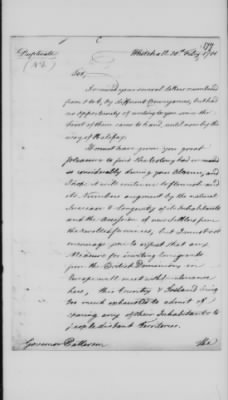 Duplicate
(No. 2)
Whitehall 20th Feby 1781
Sir,
I received your several letters numbered
from 1 to 6, by different Conveyances, but had
no opportunity of writing to you since the
first of them came to hand, until now by the
way of Halifax.
It must have given you great
pleasure to find the Colony had increased
so considerably during your absence, and
I hope it will continue to flourish and
its Numbers augment by the natural
Increase & longevity of its Inhabitants
and the Accession of new Settlers from
the revolted Provinces, but I must not
encourage you to expect that any
Measures for inviting Emigrants
from the British Dominions in
Europe will meet with countenance
here, this Country & Ireland being
too much exhausted to admit of
sparing any of their Inhabitants to
people distant Territories.
Governor Patterson
The